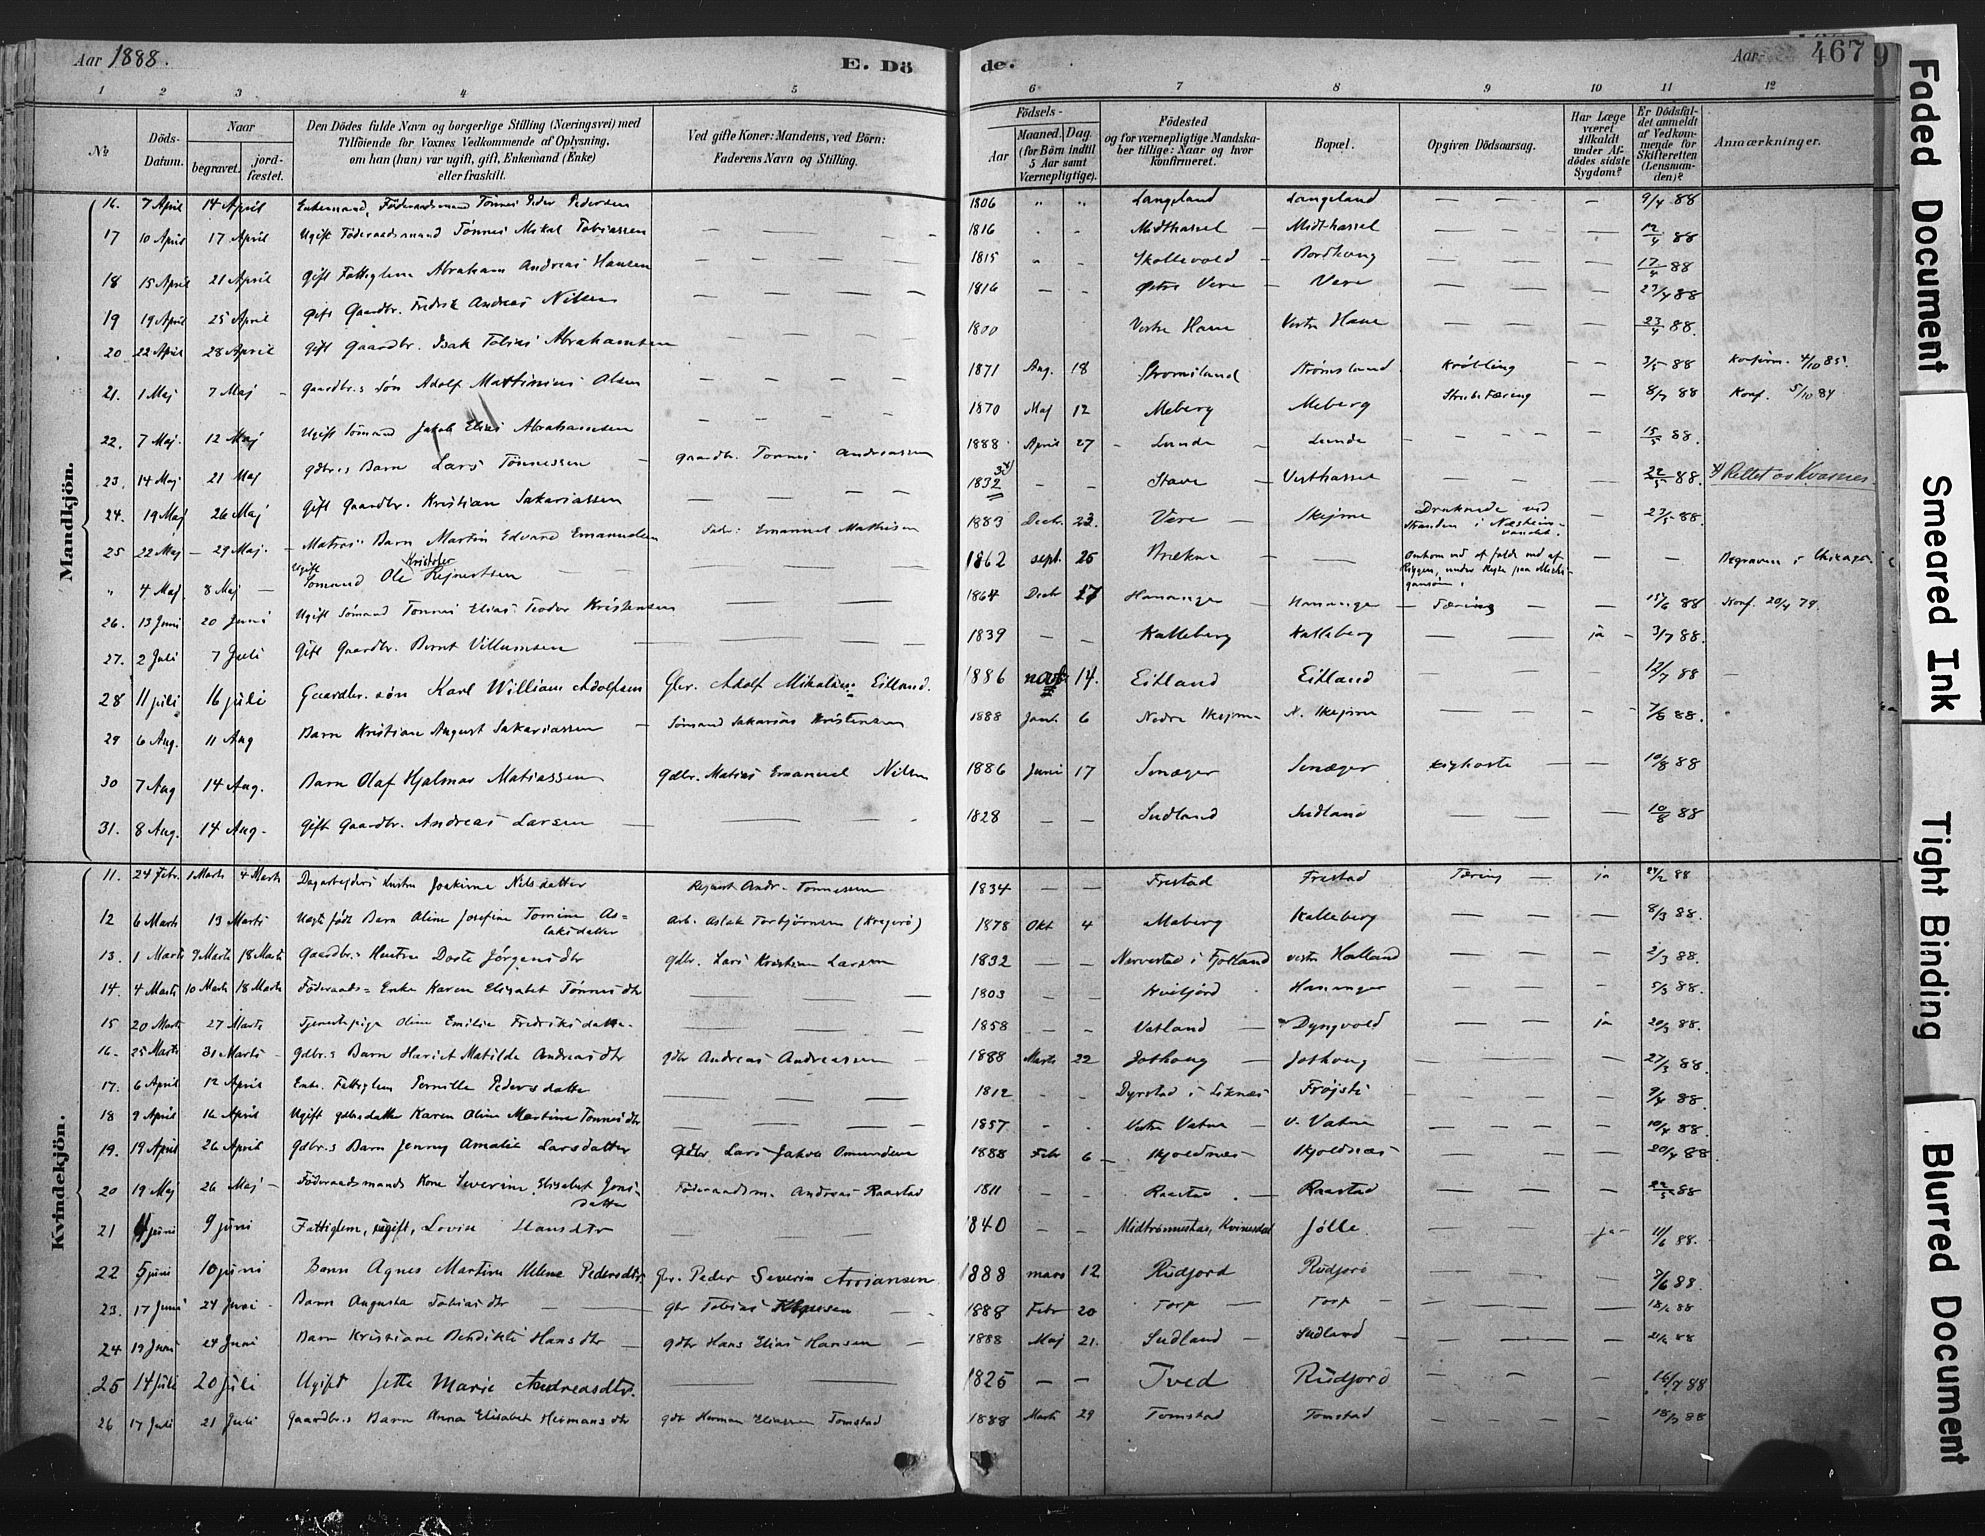 Aar 1888.
E. Dö
de.
Aar
467
9
1 2 3 4 5 6 7 8 9 10 11 12
№
Döds-Datum.
Naar
begravet.
jord-fæstet.
Den Dödes fulde Navn og borgerlige Stilling (Næringsvei) med
Tilföiende for Voxnes Vedkommende af Oplysning,
om han (hun) var ugift, gift, Enkemand (Enke)
eller fraskilt.
Ved gifte Koner: Mandens, ved Börn:
Faderens Navn og Stilling.
Födsels-
Aar
Maaned. Dag.
(for Börn indtil
5 Aar samt
Værnepligtige).
Födested
og for værnepligtige Mandska-
ber tillige: Naar og hvor
konfirmeret.
Bopæl.
Opgiven Dödsaarsag.
Har Læge
været
tilkaldt
under Af-
dödes sidste
Sygdom?
Er Dödsfal-
det anmeldt
af Vedkom-
mende for
Skifteretten
(Lensman-
den)?
Anmærkninger.
Mandkjön.
16. 7 April 14 April Enkemand, Föderaadsmand Tönnes Peder Pedersen 1806 " " Langeland Langeland — — — 9/4 88
17 10 April 17 April Ugift Föderaadsmand Tönnes Mikal Tobiassen — — — 1816 Midthassel — Midthassel — — — 12/4 88
18 15 April 21 April gift Fattiglem Abraham Andreas Hansen — — — 1815 Skollevold — Bordhoug — — — 17/4 88
19 19 April 25 April gift Gaardbr. Fredrik Andreas Nilsen — — — 1816 — — Østre Vere — Vere — — — 23/4 88
20 22 April 28 April gift Gaardbr. Isak Tobias Abrahamsen — — — 1800 Vestre Hane Vestre Hane — — — 23/4 88.
21. 1 Maj 7 Maj — Gaardbr.s Sön Adolf Mattinius Olsen — — — 1871 Aug. 18 Stromsland Strömsland Kröbling — — 3/5 88 Konfirm. 4/10 85.
22. 7 Maj. 12 Maj Ugift Sömand Jakob Elias Abrahamsen — — 1870 Maj 12 Meberg Meberg — 8/5 88 Konf. 5/10 84
23. 14 Maj 21 Maj gdbr.s Barn Lars Tönnessen — gaardbr. Tönnes Andreassen 1888 April 27 — Lunde — Lunde — — — 15/5 88.
24. 19 Maj 26 Maj gift Gaardbr. Kristian Sakariassen — — — 1832 — — Stave — Vesthassel — — — 22/5 88. x) Rettet
25 22 Maj — 29 Maj. — Matros' Barn Martin Edvard Emanuelsen Emanuel Mathisen 1883 Decb. 23. Vere — Skejme Druknede ved Stranden i — 23/5 88.
" 4 Maj 8 Maj — Ugift Sömand Ole Kristofer Rejnertsen — — 1862 Sept. 25 — — Omkom ved at falde ned af Riggen, under Rejse paa — — Begraven i Chicago.
26. 13 Juni 20 Juni Ugift Sömand Tönnes Elias Teodor Kristensen — — 1864 Decbr 17 Hananger — Hananger — Tæring — — 15/6 88 Konf. 20/4 79.
27. 2 Juli 7 Juli Gift Gaardbr. Bernt Villumsen — — — 1839 — — Kalleberg Kalleberg — — ja — 3/7 88.
28 11 juli 16 juli Gaardbr. sön Karl William Adolfsen Gbr. Adolf Mikalsen Eitland. 1886 novb 14. Eitland Eitland — — — 12/7 88 —
29 6 Aug. 11 Aug Barn Kristian August Sakariassen — Sömand Sakarias Kristensen 1888 Janr. 6 Nedre Skejme N. Skejme — — — 7/8 88.
30 7 Aug 14 Aug. Barn Olaf Hjalmar Matiassen gdbr. Matias Emanuel Nilsen 1886 Juni 17 Snæger Snæger Kighoste — — 10/8 88
31. 8 Aug. 14 Aug. gift Gaardbr. Andreas Larsen — — — 1828 — — Sudland Sudland — — — 10/8 88
Kvindekjön.
11. 24 Febr. 1 Marts 4 Marts Dagarbejders Kustru Joakime Nilsdatter Rejnert Andr. Tönnessen 1834 — — Frestad Frestad Tæring — ja 24/2 88
12 6 Marts 13 Marts Uægte födt Barn Oline Josefine Tomine As=
laksdatter Arb. Aslak Torbjörnsen (Kragerö) 1878 Okt 4 Maberg Kalleberg — — — 8/3 88.
13. 1 Marts 9 Marts 18 Marts Gaardbr.s Hustru Dorte Jörgensdtr gdbr. Lars Kristian Larsen 1832 — — Nervestad i Fjotland vestre Holland — — — 2/3 88.
14. 4 Marts 10 Marts 18 Marts Föderaads= Enke Karen Elisabet Tönnesdtr — — — 1803 — — Hananger — — — 5/3 88.
15 20 Marts 27 Marts Tjenestepige Oline Emilie Fredriksdatter — — — 1858 — — Vatland — Dyngvold — — ja 20/3 88.
16. 25 Marts 31 Marts — gdbr.s Barn Hariet Matilde Andreasdtr gdbr Andreas Andreassen — 1888 Marts 22 Jothoug — Jothoug — — — 27/3 88.
17. 6 April 12 April Enke. Fattiglem Pernille Pedersdatter — — — 1812 — — Dyrstad i Liknæs Fröjsti — — — 9/4 88.
18 9 April 16 April Ugift gdbrsdatter Karen Oline Martine Tönnesdtr — — — 1857 — — Vestre Vatne — V. Vatne — — — 10/4 88.
19. 19 April 26 April gdbr.s Barn Jenny Amalie Larsdatter gdbr Lars Jakob Omundsen 1888 Febr 6 — Skjoldnæs — Skjoldnæs — — — 20/4 88.
20 19 Maj 26 Maj — Föderaadsmands Kone Severine Elisabet Jons=
datter Föderaadsm. Andreas Raastad 1811 — — Raastad — Raastad — — — 22/5 88
21 4 juni 9 juni Fattiglem, ugift, Lovise Hansdtr — — — 1840 — — Kvinesdal Jölle — — ja — 11/6 88.
22 5 juni 10 juni Barn Agnes Martine Helene Pedersdtr Gbr. Peder Severin Arojansen 1888 mars 12 Rudjord Rudjord — — — 7/6 88.
23. 17 Juni 24 Juni — Barn Augusta Tobiasdtr — — gbr Tobias — 1888 Febr 20 Torp — Torp — — — 18/6 88
24 19 Juni 24 Juni Barn Kristiane Bendikte Hansdtr — gdbr Hans Elias Hansen — 1888 Maj 21. Sudland — Sudland — — — 21/6 88
25 14 Juli 20 Juli Ugift Jette Marie Andreasdtr. — — 1825 — — Tved Rudjord — — — 16/7 88
26 17 Juli 21 Juli Gaardbr.s Barn Anna Elisabet Hermansdtr gdbr Herman Eliassen Tomstad 1888 Marts 29 Tomstad Tomstad — — — 18/7 88
Faded Document
Smeared Ink
Tight Binding
Blurred Document